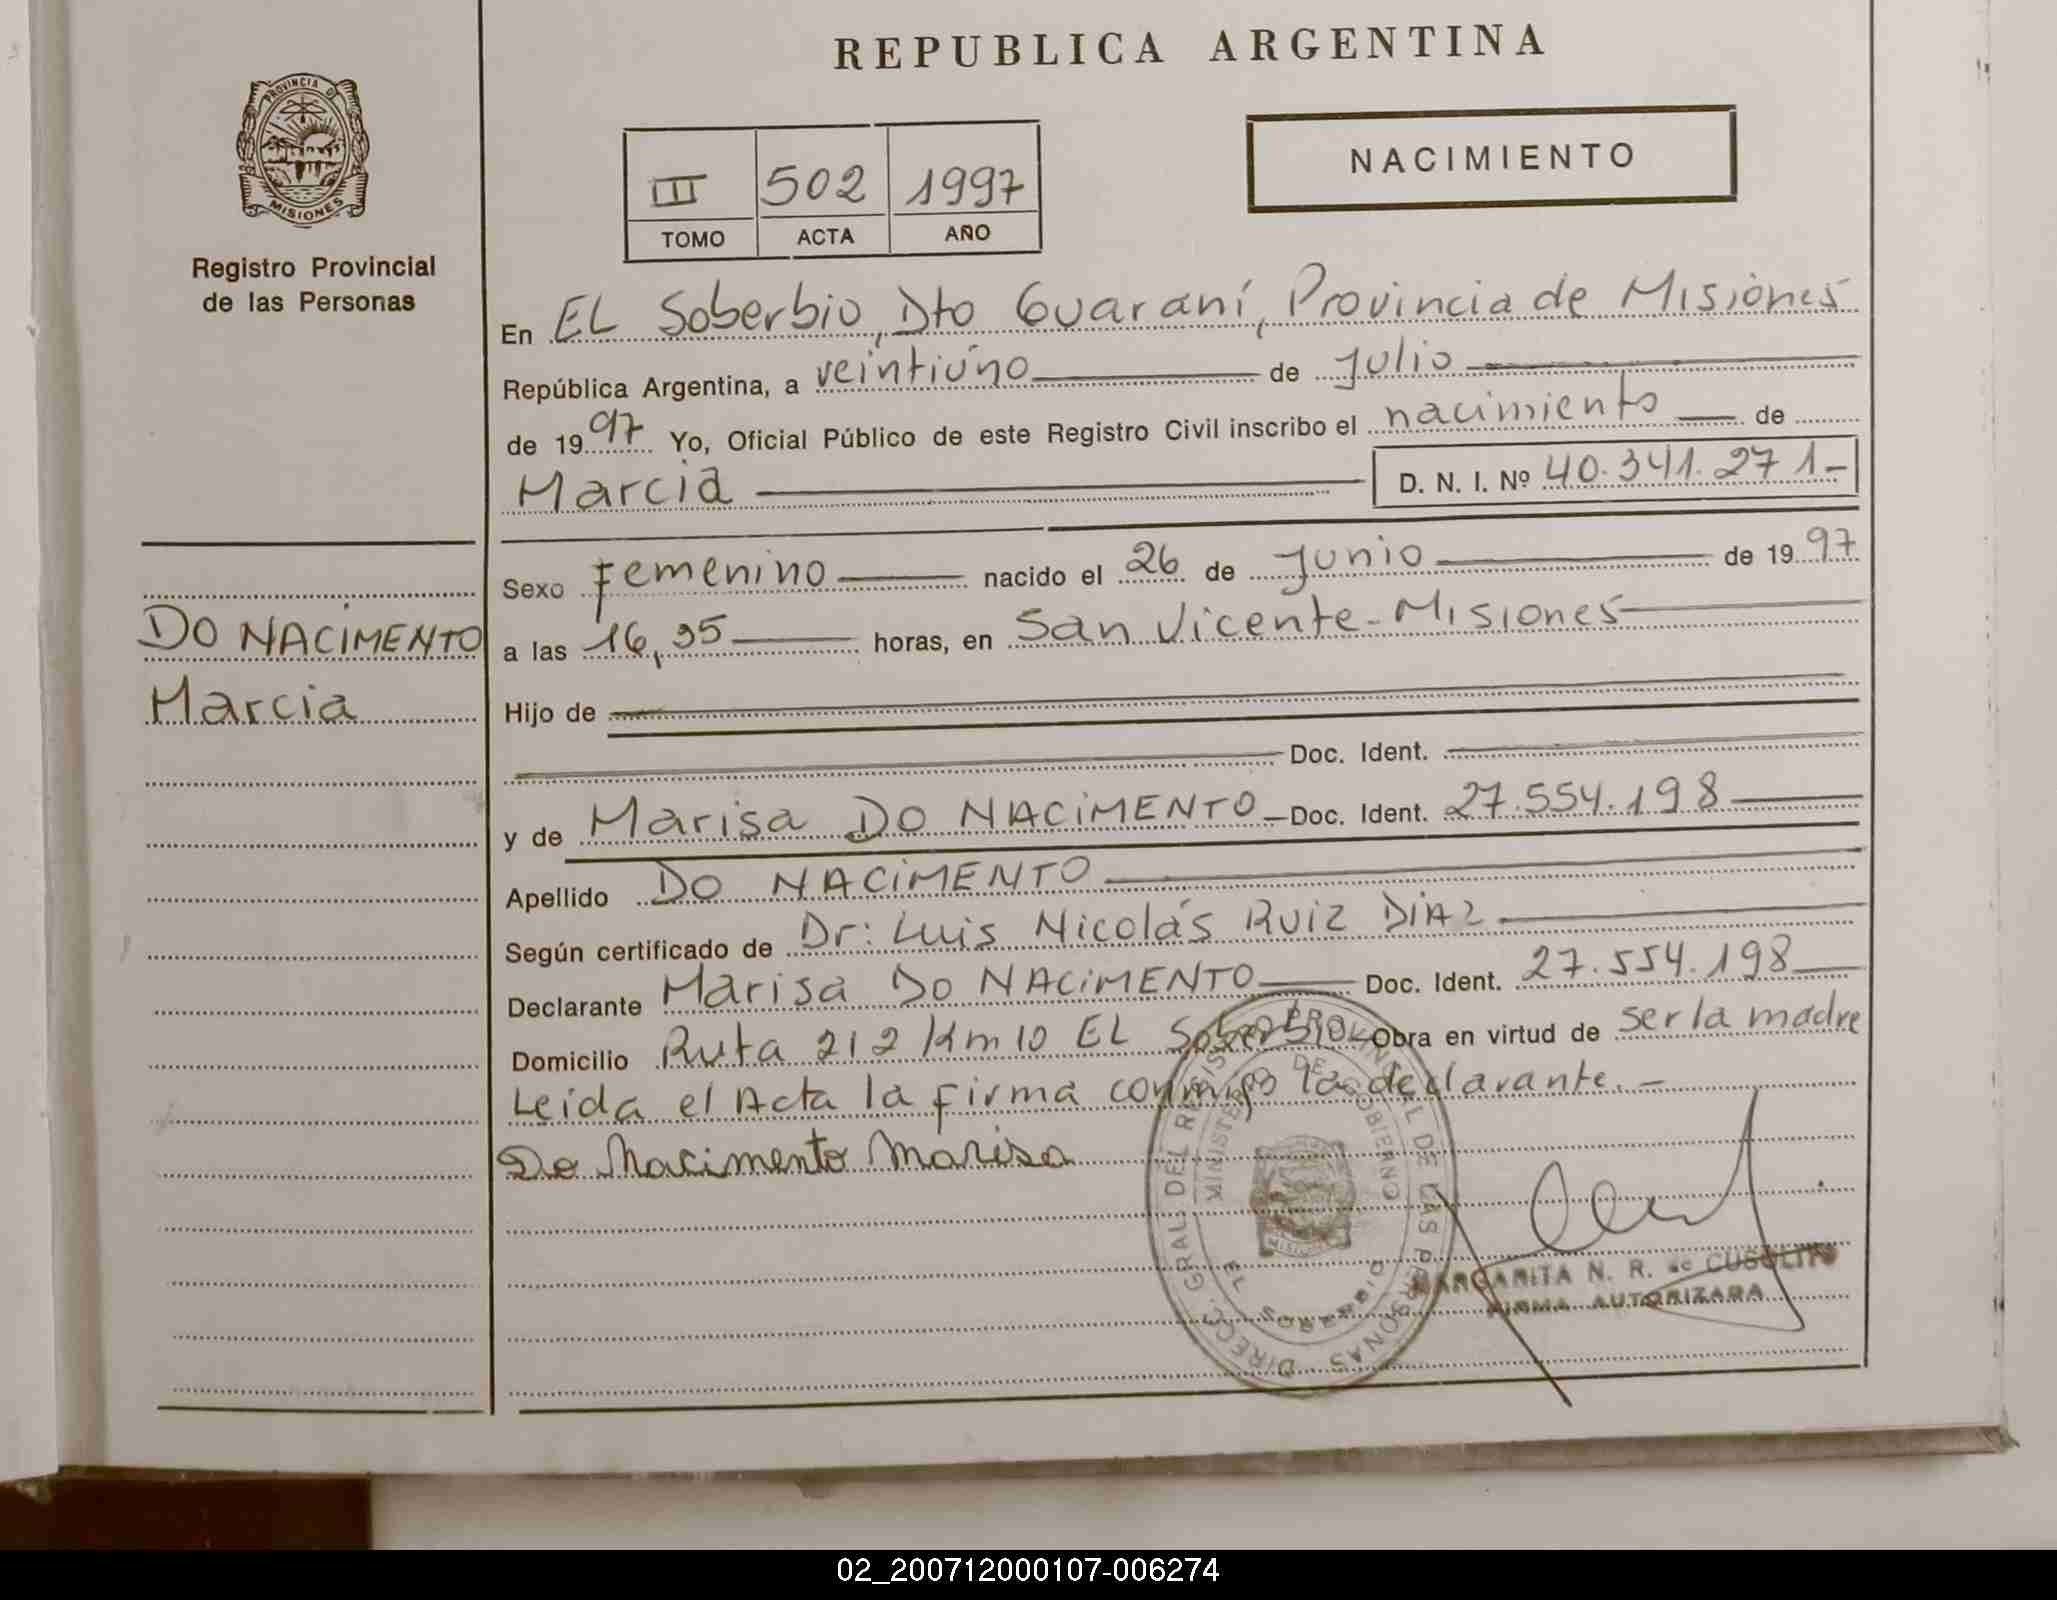 REPUBLICA ARGENTINA
PROVINCIA D
MISIONES
Registro Provincial
de las Personas
NACIMIENTO
III 502 1997
TOMO ACTA AÑO
En EL Soberbio, Dto Guaraní, Provincia de Misiones
República Argentina, a veintiúno de Julio
de 1997 Yo, Oficial Público de este Registro Civil inscribo el nacimiento de
Marcia D. N. I. Nº 40.341.271-
DO NACIMENTO
Marcia
Sexo Femenino nacido el 26 de Junio de 1997
a las 16,35 horas, en San Vicente-Misiones
Hijo de
Doc. Ident.
y de Marisa DO NACIMENTO Doc. Ident. 27.554.198
Apellido DO NACIMENTO
Según certificado de Dr: Luis Nicolás Ruiz DIAZ
Declarante Marisa DO NACIMENTO Doc. Ident. 27.554.198
Domicilio Ruta 212 Km 10 EL Soberbio Obra en virtud de ser la madre
Leída el Acta la firma conmigo la declarante.-
Do Nacimento Marisa
DIRECC. GRAL DEL REGISTRO PROVINCIAL DE LAS PERSONAS
MINISTERIO DE GOBIERNO
MISIONES
EL SOBERBIO
MARGARITA N. R. de
FIRMA AUTORIZADA
02_200712000107-006274